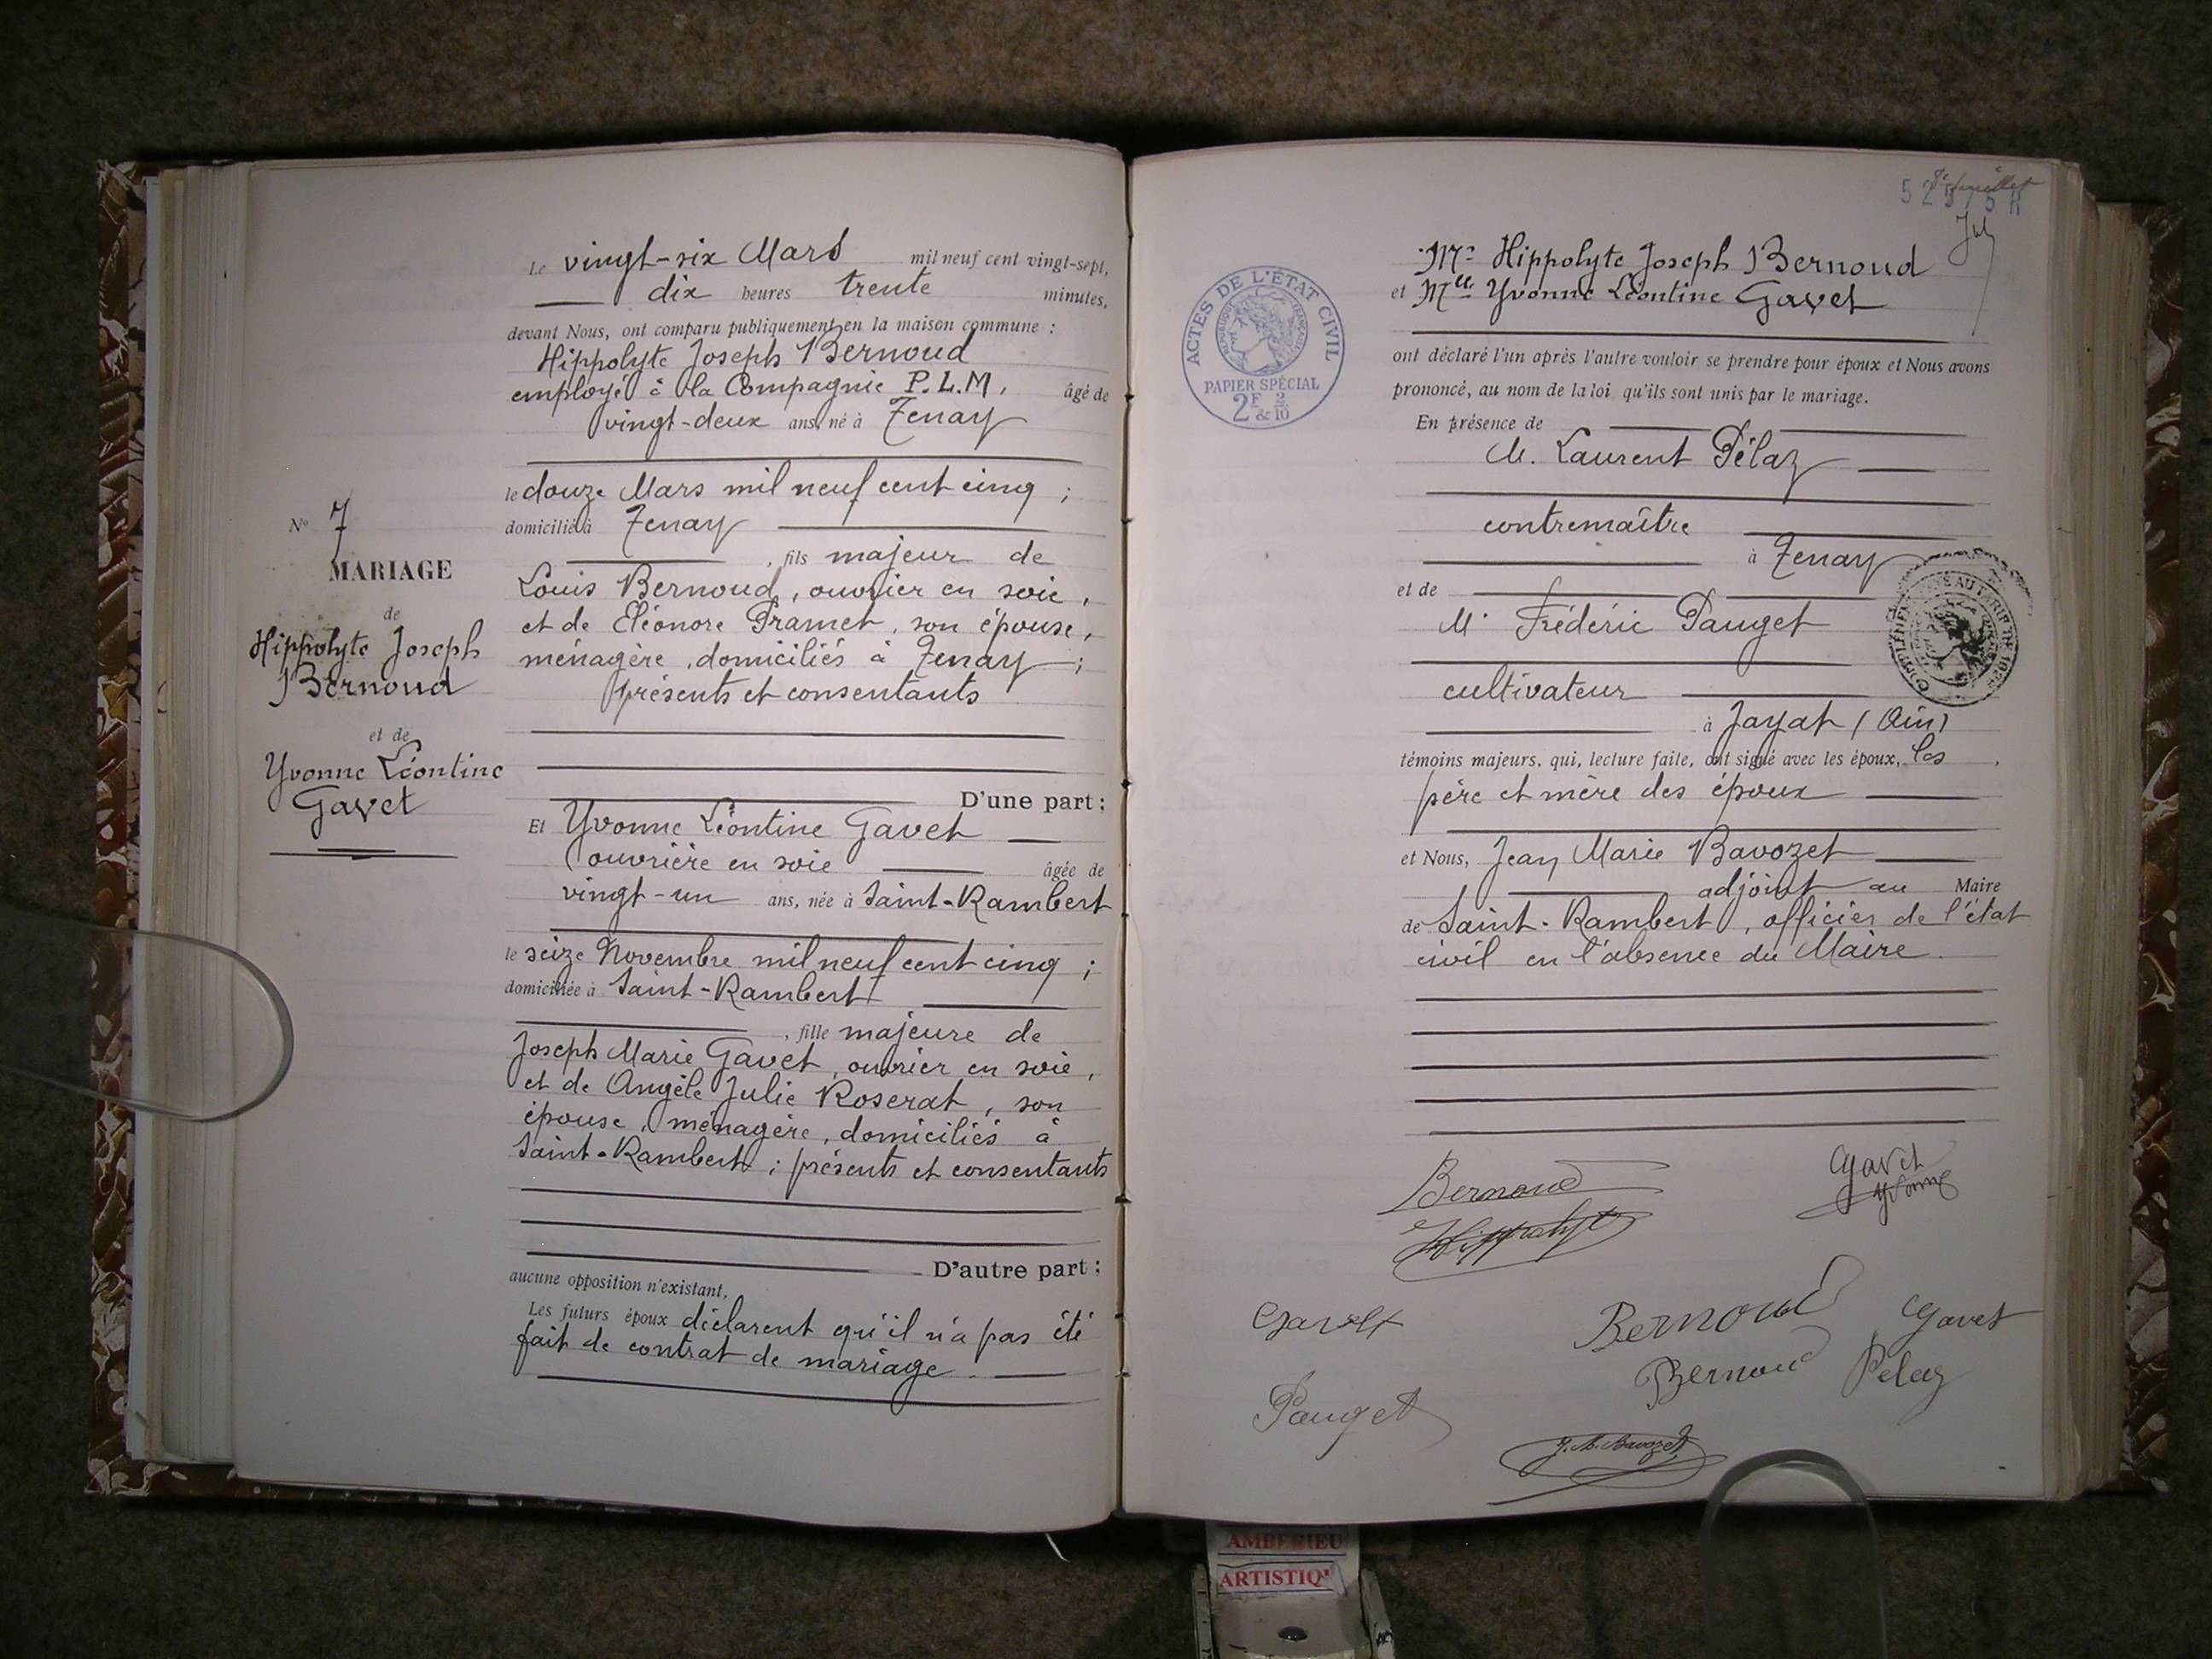 Le vingt-six Mars mil neuf cent vingt-sept,
dix heures trente minutes,
devant Nous, ont comparu publiquement en la maison commune :
Hippolyte Joseph Bernoud
employé à la Compagnie P.L.M, âgé de
vingt-deux ans, né à Tenay
le douze Mars mil neuf cent cinq ;
domicilié à Tenay
, fils majeur de
Louis Bernoud, ouvrier en soie,
et de Eléonore Pramet, son épouse,
ménagère, domiciliés à Tenay ;
présents et consentants
D'une part ;
Et Yvonne Léontine Gavet
ouvrière en soie âgée de
vingt-un ans, née à Saint-Rambert
le seize Novembre mil neuf cent cinq ;
domiciliée à Saint-Rambert
, fille majeure de
Joseph Marie Gavet, ouvrier en soie,
et de Angèle Julie Roserat, son
épouse, ménagère, domiciliés à
Saint-Rambert ; présents et consentants
D'autre part ;
aucune opposition n'existant.
Les futurs époux déclarent qu'il n'a pas été
fait de contrat de mariage.
No 7
MARIAGE
de
Hippolyte Joseph
Bernoud
et de
Yvonne Léontine
Gavet
Mr Hippolyte Joseph Bernoud
et Melle Yvonne Léontine Gavet
ont déclaré l'un après l'autre vouloir se prendre pour époux et Nous avons
prononcé, au nom de la loi, qu'ils sont unis par le mariage.
En présence de
M. Laurent Pélaz
contremaître
à Tenay
et de
Mr Frédéric Pauget
cultivateur
à Jayat (Ain)
témoins majeurs, qui, lecture faite, ont signé avec les époux, les
père et mère des époux
et Nous, Jean Marie Bavozet
adjoint au Maire
de Saint-Rambert, officier de l'état
civil en l'absence du Maire.
ACTES DE L'ÉTAT CIVIL
RÉPUBLIQUE FRANÇAISE
PAPIER SPÉCIAL
2F & 2/10
Bernoud
Hippolyte
Gavet
Yvonne
Gavet
Bernoud
Gavet
Bernoud
Pelaz
Pauget
J. M. Bavozet
AMBERIEU
ARTISTIQ